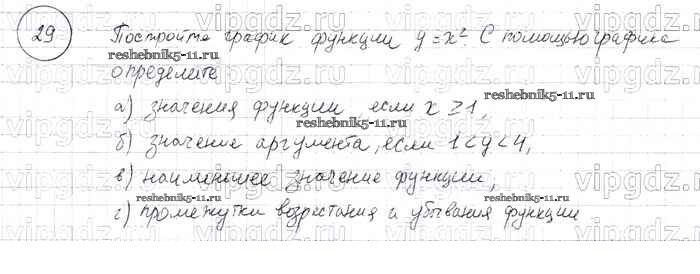 29 Постройте график функции y = x². С помощью графика
определите
а) значения функции если x ≥ 1,
б) значение аргумента, если 1 < y < 4,
в) наименьшее значение функции,
г) промежутки возрастания и убывания функции
vipgdz.ru
reshebnik5-11.ru